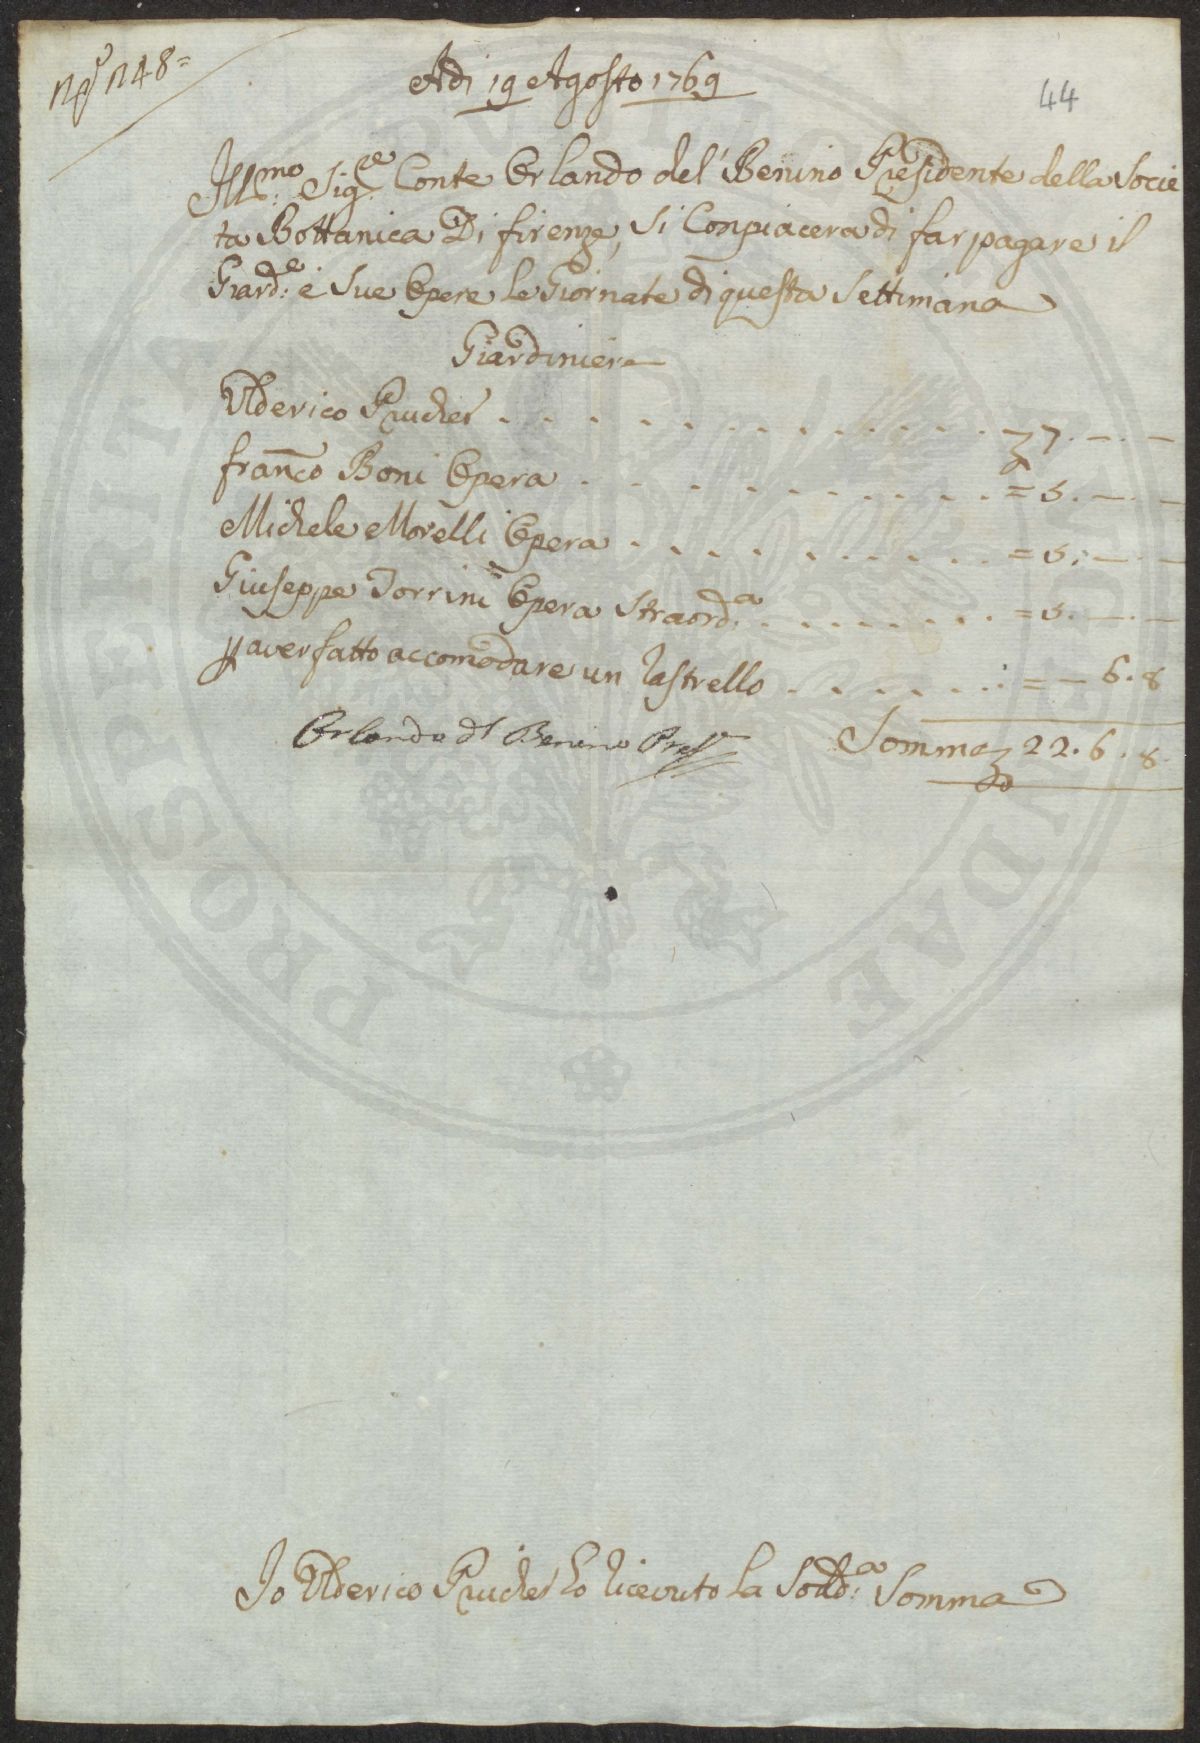 Adi 19 Agosto 1769
44
Ill.mo Sig.re Conte Orlando del Benino Presidente della Socie
ta Bottanica Di firenze, si Conpiacera di far pagare il
Giard.e e Sue Opere le Giornate di questa Settimana
Giardiniere
Ulderico Pruches . . . . . . . . . . . . . 7. — . —
Franco Boni Opera . . . . . . . . . . . = 5. — . —
Michele Morelli Opera . . . . . . . . = 5. — . —
Giuseppe Torrini Opera Straord.a . . . . . . . = 5. — . —
p aver fatto accomodare un rastrello . . . . . . = — 6. 8
Orlando dl Benino Pres.
Somma 22. 6. 8.
Io Ulderico Pruches ho ricevuto la Sudd.a Somma
PROSPERITATI PUBLICAE AUGENDAE